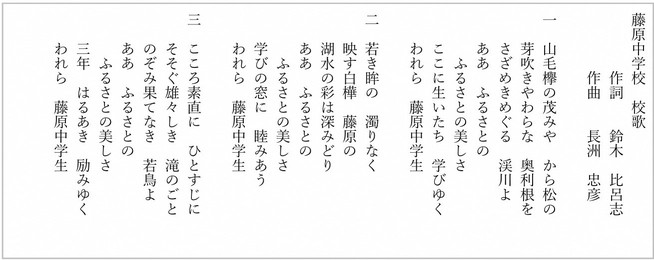 藤原中学校　校歌
作詞　鈴木　比呂志
作曲　長洲　忠彦
一　山毛欅の茂みや　から松の
芽吹きやわらな　奥利根を
さざめきめぐる　渓川よ
ああ　ふるさとの
ふるさとの美しさ
ここに生いたち　学びゆく
われら　藤原中学生
二　若き眸の　濁りなく
映す白樺　藤原の
湖水の彩は深みどり
ああ　ふるさとの
ふるさとの美しさ
学びの窓に　睦みあう
われら　藤原中学生
三　こころ素直に　ひとすじに
そそぐ雄々しき　滝のごと
のぞみ果てなき　若鳥よ
ああ　ふるさとの
ふるさとの美しさ
三年　はるあき　励みゆく
われら　藤原中学生